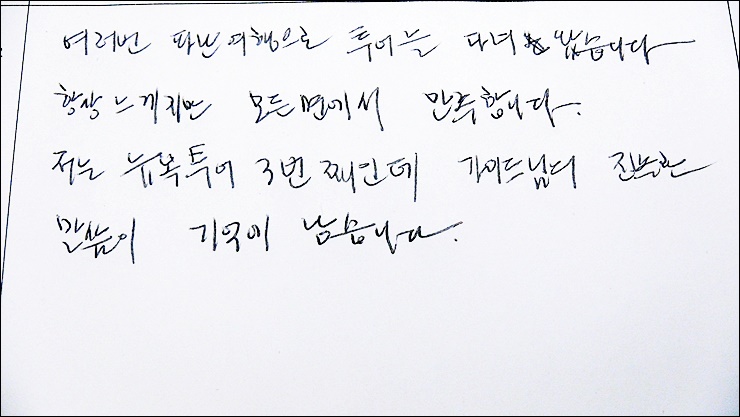 여러번 파난여행으로 투어를 다녀 봤습니다
항상 느끼지만 모든면에서 만족합니다.
저는 뉴욕투어 3번째인데 가이드님의 진솔한
말씀이 기억에 남습니다.